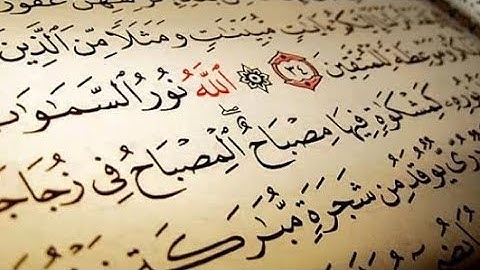 غَفُور
ءَايَٰتٍ مُّبَيِّنَٰتٍ وَمَثَلًا مِّنَ ٱلَّذِينَ
وَمَوْعِظَةً لِّلْمُتَّقِينَ ٣٤ ٱللَّهُ نُورُ ٱلسَّمَٰوَٰ
كَمِشْكَوٰةٍ فِيهَا مِصْبَاحٌ ٱلْمِصْبَاحُ فِى زُجَاجَ
دُرِّىٌّ يُوقَدُ مِن شَجَرَةٍ مُّبَٰرَكَةٍ